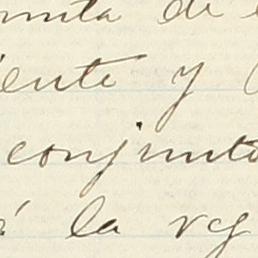 unta de
iente y
conjunto
á la reg